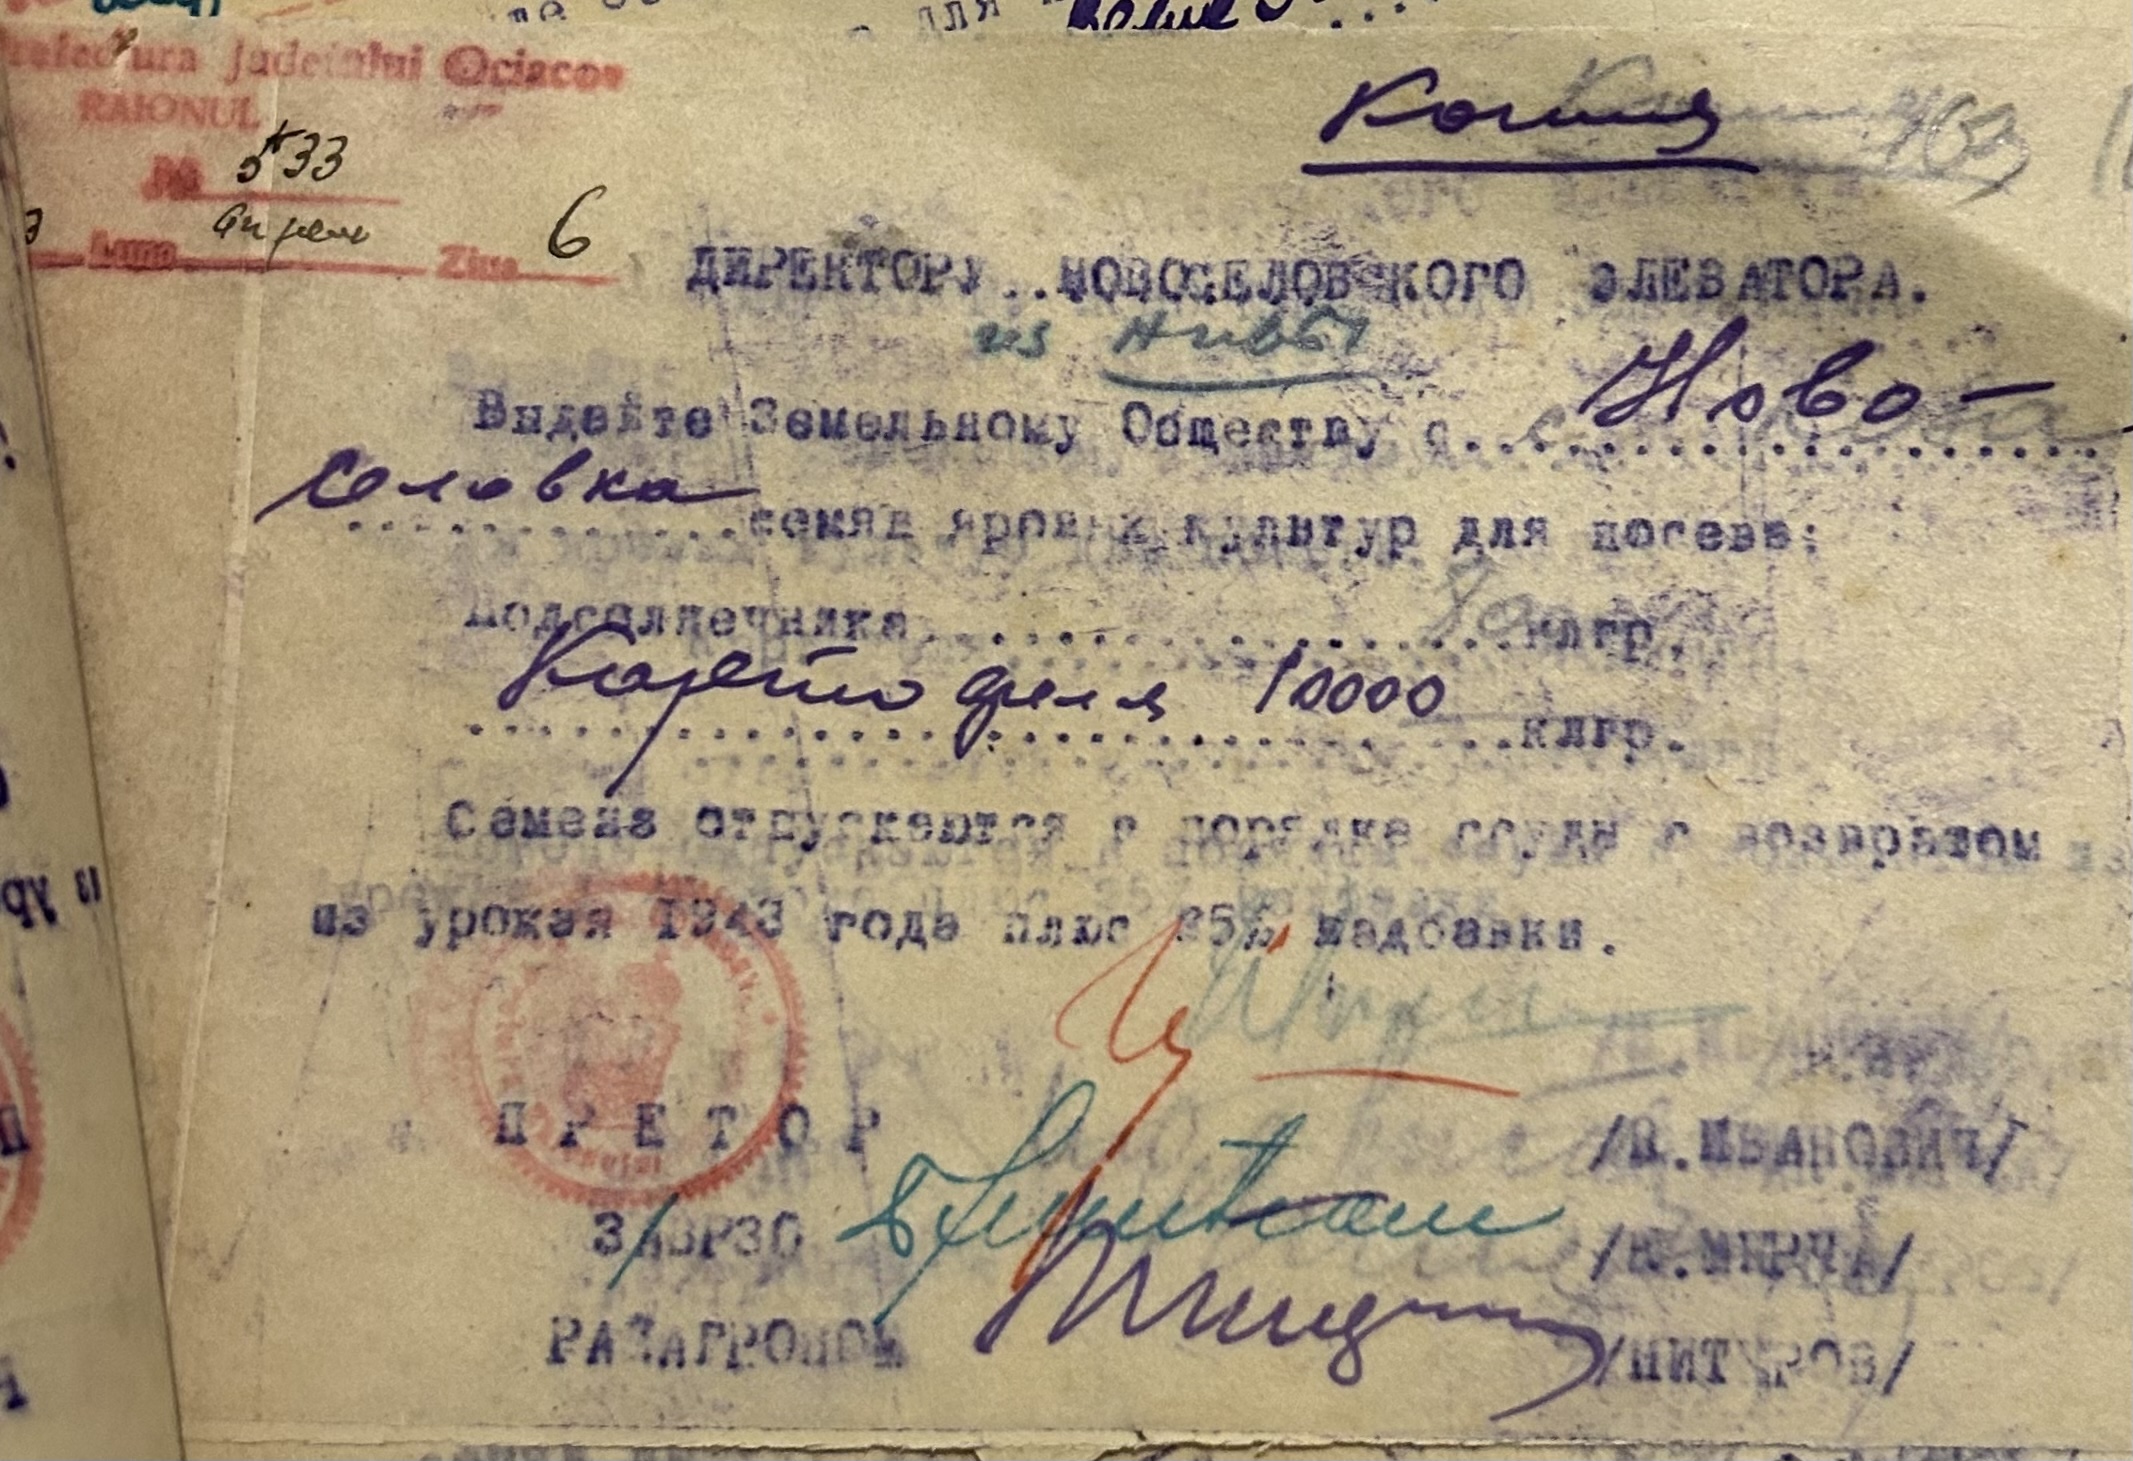 Prefectura Judetului Ociacov
RAIONUL
№ 533
Luna апрель Ziua 6
Копия
ДИРЕКТОРУ..НОВОСЕЛОВСКОГО ЭЛЕВАТОРА.
из Нивы
Выдайте Земельному Обществу с..с. Ново-
селовка семян яровых культур для посева:
Подсолнечника.................клгр.
Картофеля 10000
..............................клгр.
Семена отпускаются в порядке ссуды с возвратом
из урожая 1943 года плюс 25% надбавки.
ПРЕТОР /П.ИВАНОВИЧ/
ЗАВРЗО
РАЗАГРОНОМ